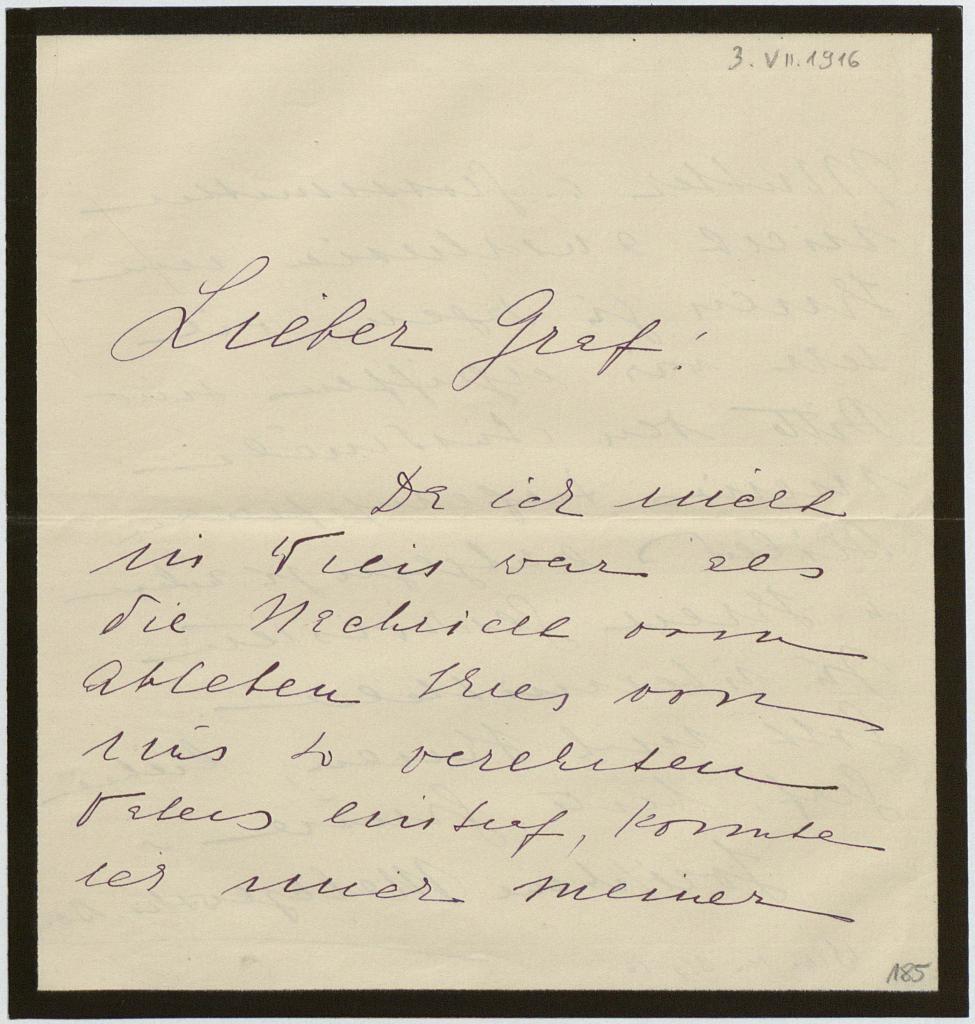 3. VII. 1916
Lieber Graf!
Da ich nicht
in Wien war als
die Nachricht vom
Ableben Ihres von
uns so verehrten
Vaters eintraf, konnte
ich nur meiner
185